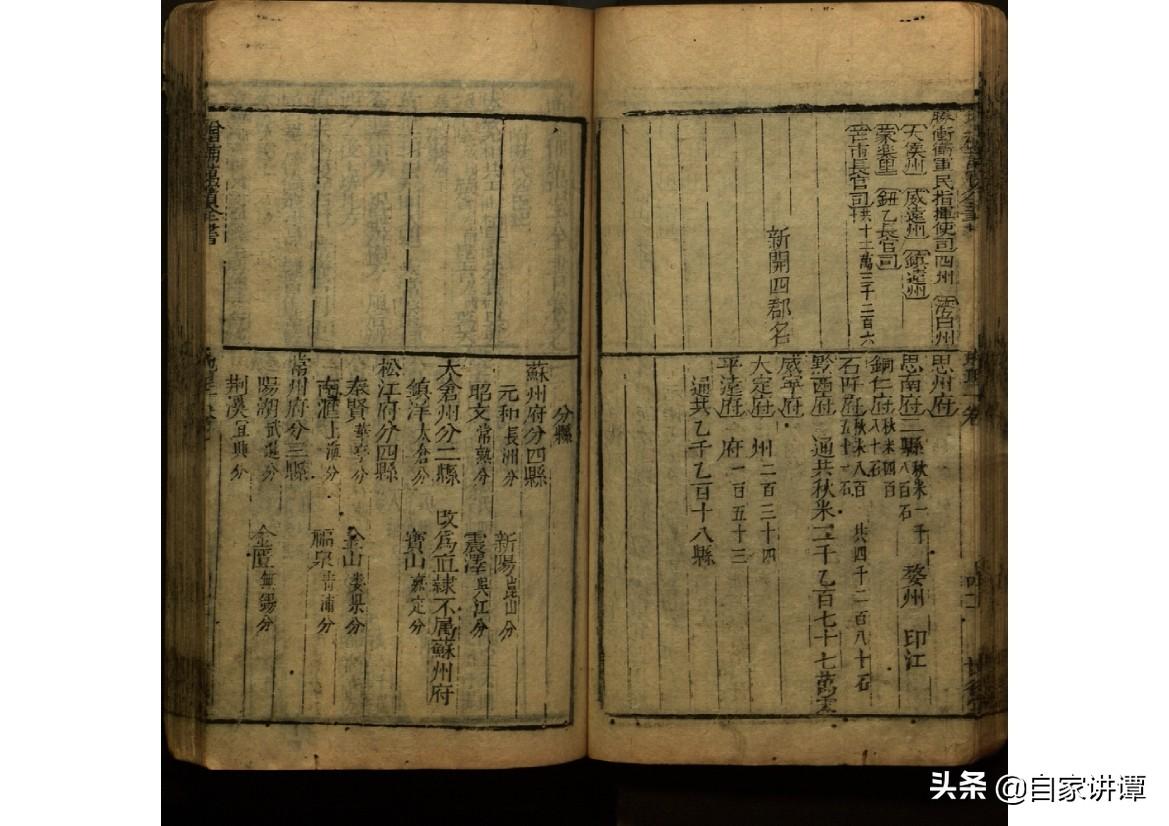 騰衝衛軍民指揮使司四州 灣白州
大侯州 威遠州 鎮遠州
蒙樂里 鈕乙長官司
芒市長官司 共十二萬三千二百六
新開四郡名
思州府
思南府二縣 秋米一千八百石 婺州 印江
銅仁府 秋米四百八十石
石阡府 秋米八百五十一石 共四千二百八十石
黔西府 通共秋米二千乙百七十七萬零
威寧府
大定府 州二百三十四
平遠府 府一百五十三
通共乙千乙百十八縣
分縣
蘇州府分四縣
元和 長洲分 新陽 崑山分
昭文 常熟分 震澤 吳江分
太倉州分二縣 改為直隸不屬蘇州府
鎮洋 太倉分 寶山 嘉定分
松江府分四縣
奉賢 華亭分 金山 婁縣分
南滙 上海分 福泉 青浦分
常州府分三縣
陽湖 武進分 金匱 無錫分
荆溪 宜興分
增補萬寶全書
头条 @自家讲谭